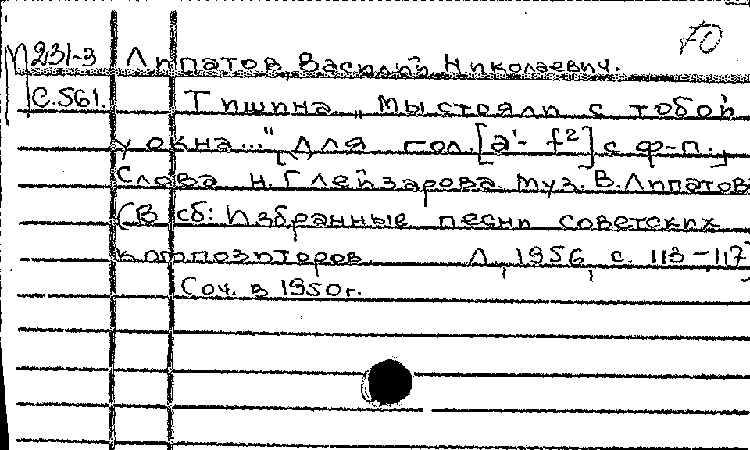 FO
М231-3 Липатов, Василий Николаевич.
С.561. Тишина „Мы стояли с тобой
у окна..." [Для гол. [a'- f²] с ф-п.]
Слова Н. Глейзарова. Муз. В. Липатов
(В сб: Избранные песни советских
композиторов. Л., 1956, с. 113-117)
Соч. в 1950г.